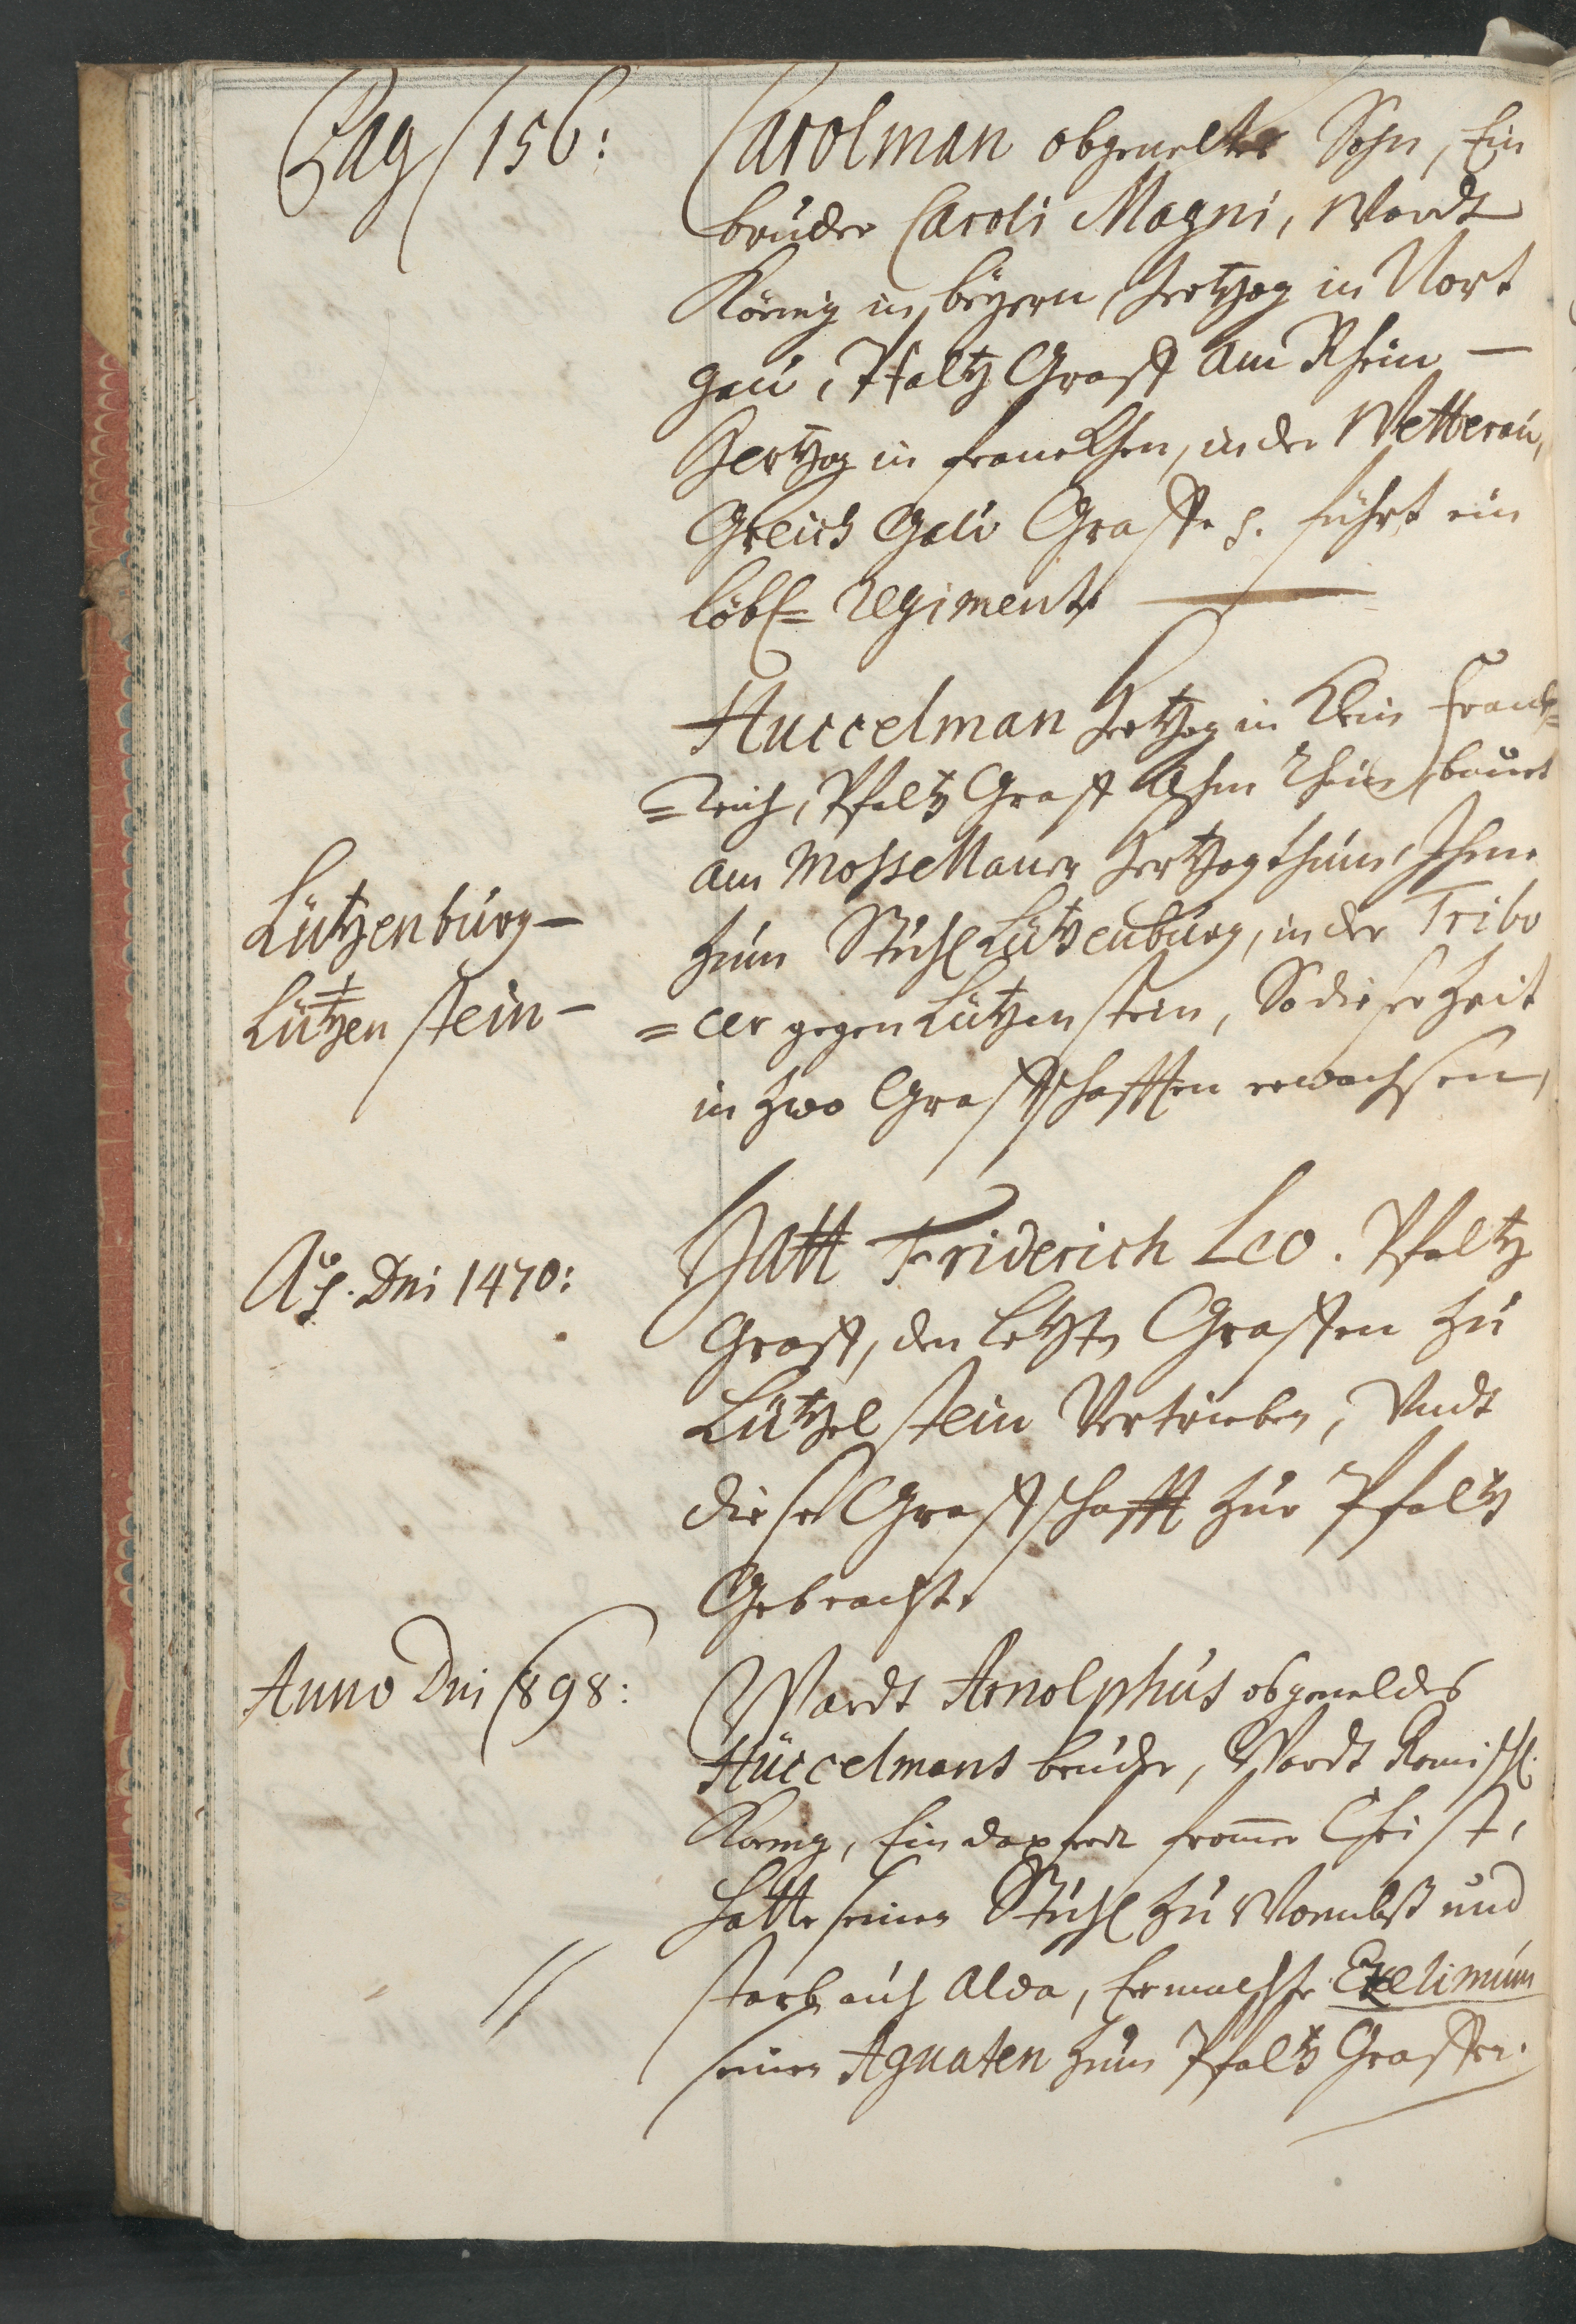 Pag 156:
Carolman obgemelter Sohn, Ein
bruder Caroli Magni, Wardt
König in beyern, Hertzog in Nort
gau, Pfaltz Graff am Rhein —
Hertzog in franckhen, in der Wetterau,
Greich Gau Graffe p. führt ein
löbl= Regiment.
Huccelman Hertzog in Klein Franck=
=reich, Pfaltz Graff Ahm Rhein, bauet
am Mossellaner Hertzogthum, Ihme
Lützenburg —
zum Stuhl Lützenburg, in der Tribo
Lützen stein —
=cer gegen Lützenstein, So dieser Zeit
in zwo Graffschafften erwachsen,
Aõ. Dni 1470:
Hatt Friderich Leo. Pfaltz
Graff, den letzten Graffen zu
Lützelstein Vertrieben, Vndt
diese Graffschafft zur Pfaltz
Gebracht.
Anno Dni 898:
Wardt Arnolphus obgemeldts
Huccelmans bruder, Wardt Romischl.
König, Ein dapferer from̅er Christ,
hatte seinen Stuhl zu Wormbß und
starb auch alda, Er machte Ezelimum
seinen Agnaten zum Pfaltz Graffen.